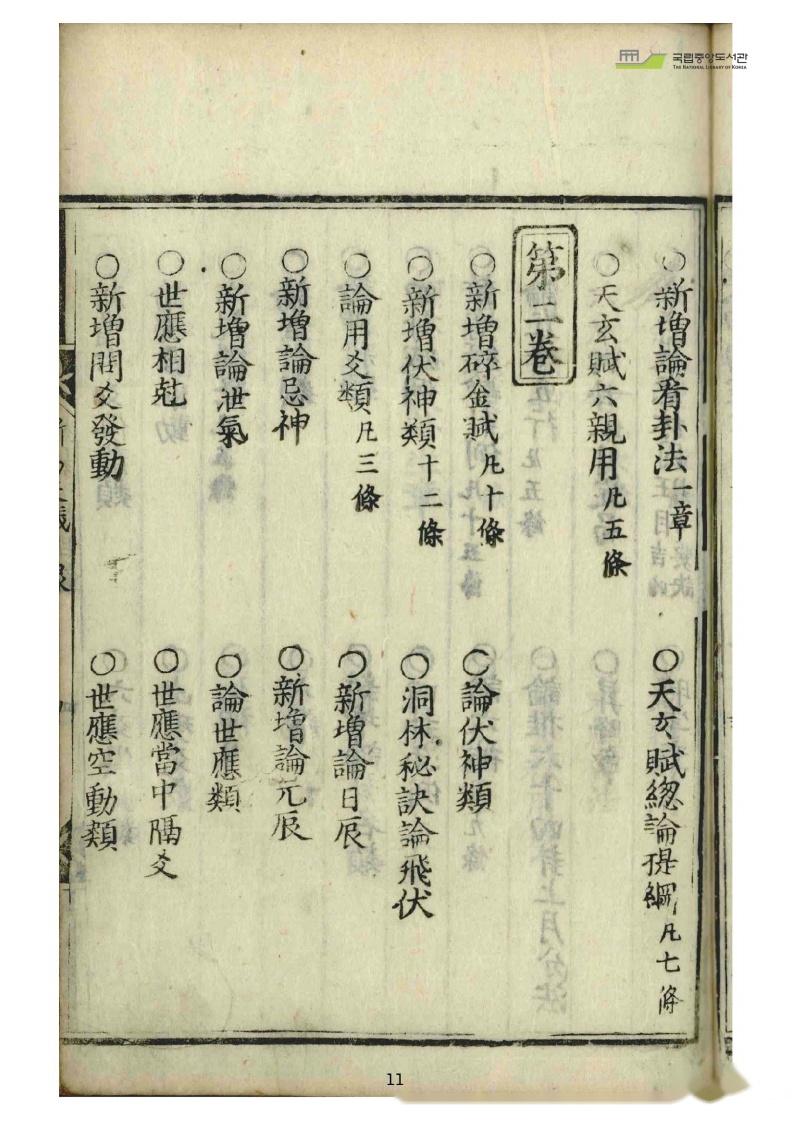 국립중앙도서관
THE NATIONAL LIBRARY OF KOREA
○新增論看卦法一章
○天玄賦總論提綱凡七條
○天玄賦六親用凡五條
第二卷
○新增碎金賦凡十條
○論伏神類
○新增伏神類十二條
○洞林秘訣論飛伏
○論用爻類凡三條
○新增論日辰
○新增論忌神
○新增論元辰
○新增論泄氣
○論世應類
○世應相尅
○世應當中隔爻
○新增間爻發動
○世應空動類
11